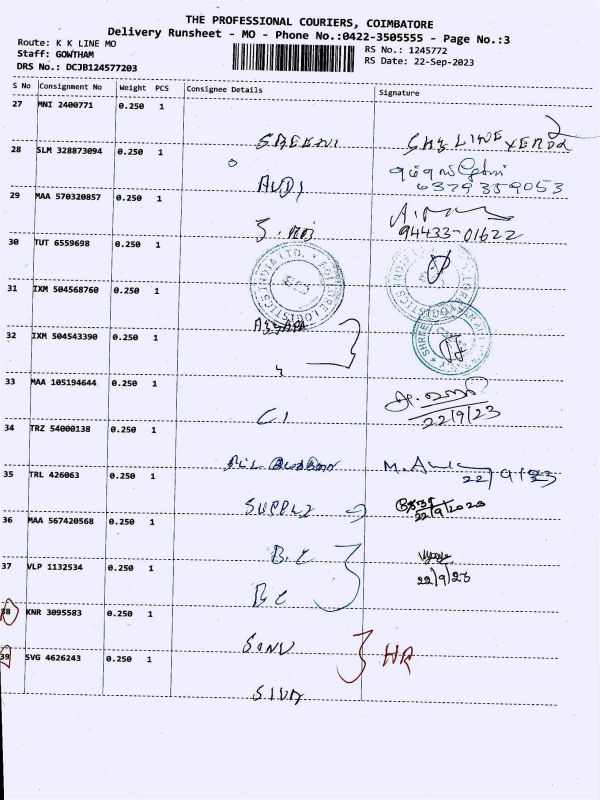 THE PROFESSIONAL COURIERS, COIMBATORE
Delivery Runsheet - MO - Phone No.:0422-3505555 - Page No.:3
Route: K K LINE MO
Staff: GOWTHAM
DRS No.: DCJB124577203
RS No.: 1245772
RS Date: 22-Sep-2023
S No Consignment No Weight PCS Consignee Details Signature
27 MNI 2400771 0.250 1
SREENI
28 SLM 328873094 0.250 1
AUDI 6379359053
29 MAA 570320857 0.250 1
94433-01622
30 TUT 6559698 0.250 1
31 IXM 504568760 0.250 1
32 IXM 504543390 0.250 1
33 MAA 105194644 0.250 1
CI 22/9/23
34 TRZ 54000138 0.250 1
22/9/23
35 TRL 426063 0.250 1
SUPPLY 22/9/2023
36 MAA 567420568 0.250 1
B.C
37 VLP 1132534 0.250 1 22/9/23
BC
38 KNR 3095583 0.250 1
SONU HR
39 SVG 4626243 0.250 1
SIVA